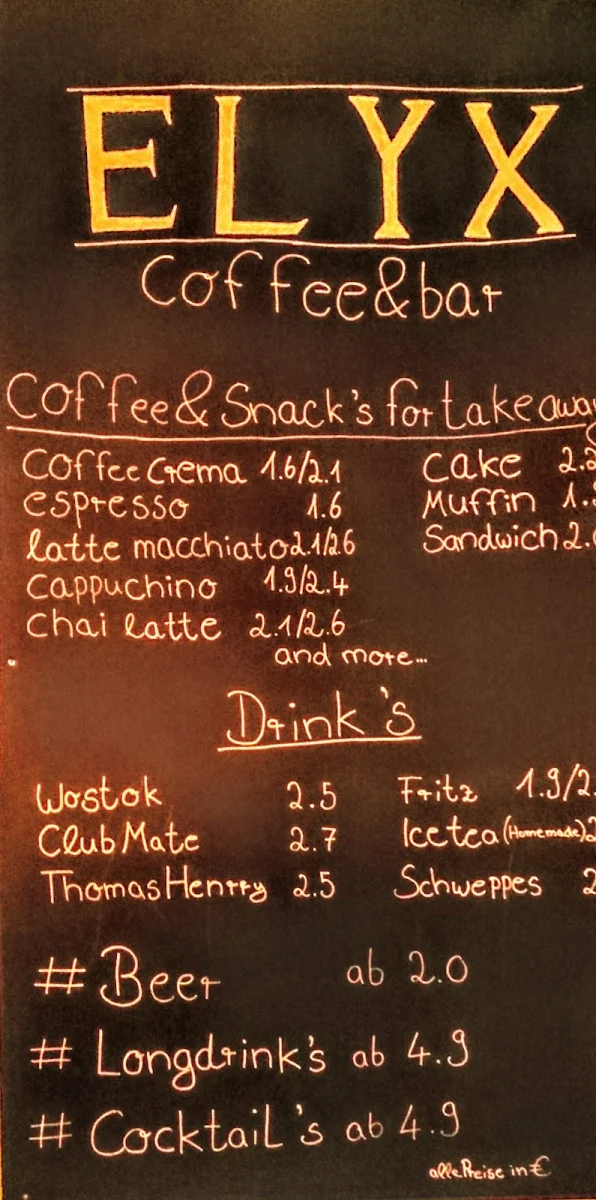 ELYX
Coffee&bar
Coffee & Snack's for take away
Coffee Crema 1.6/2.1
espresso 1.6
latte macchiato 2.1/2.6
Cappuchino 1.9/2.4
Chai latte 2.1/2.6
and more...
Cake
Muffin
Sandwich
Drink's
Wostok 2.5
Club Mate 2.7
Thomas Henrry 2.5
Fritz 1.9/2.
Icetea (Homemade)
Schweppes
# Beer ab 2.0
# Longdrink's ab 4.9
# Cocktail's ab 4.9
alle Preise in €